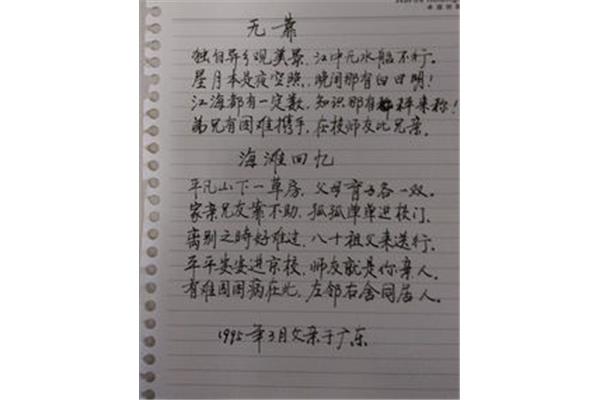 无靠
独自异乡观美景,江中无水船不行。
星月本是夜空照,晚间那有白日明!
江海都有一定数,知识那有秤来称!
弟兄有困难携手,在校师友比兄亲。
海滩回忆
平凡山下一草房,父母育子各一双。
家亲兄友靠不助,孤孤单单进校门。
离别之時好难过,八十祖父来送行。
平平安安进京校,师友就是你亲人。
有难困困病在此,左邻右舍同居人。
1995年3月父亲于广东